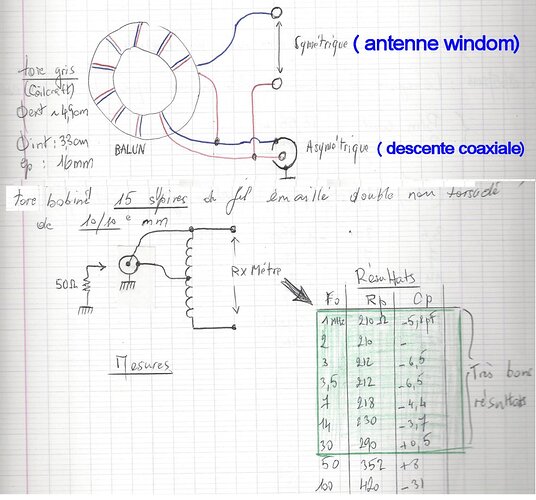 Symétrique ( antenne windom)
tore gris
(Coilcraft)
Φext ~ 4,9cm
Φint : 33cm
ep : 16mm
BALUN
Asymétrique ( descente coaxiale)
tore bobiné 15 spires de fil émaillé double non torsadé
de 10/10e mm
50Ω
RxMètre
Mesures
Résultats
Fo Rp Cp
1 MHz 210 Ω -5,8 pF
2 210 -
3 212 -6,5
3,5 212 -6,5
7 218 -4,4
14 230 -3,7
30 290 +0,5
50 352 +8
100 420 -31
Très bons
résultats